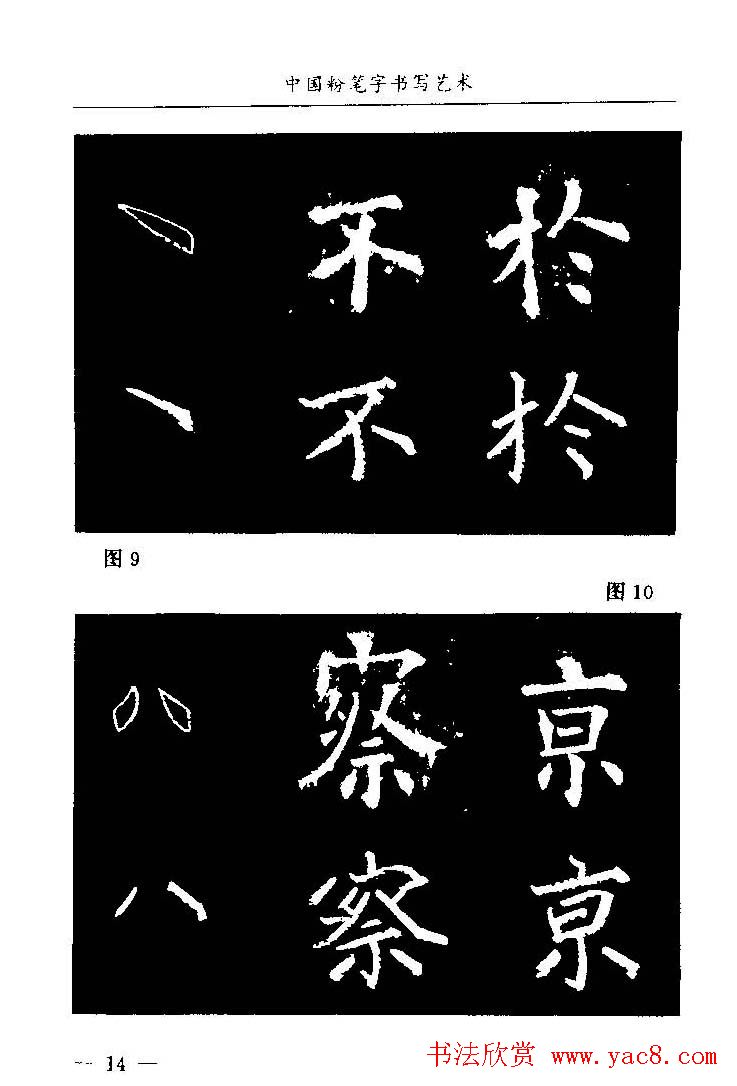 中国粉笔字书写艺术
不 扵
不 扵
图9
图10
察 亰
察 亰
14
书法欣赏 www.yac8.com